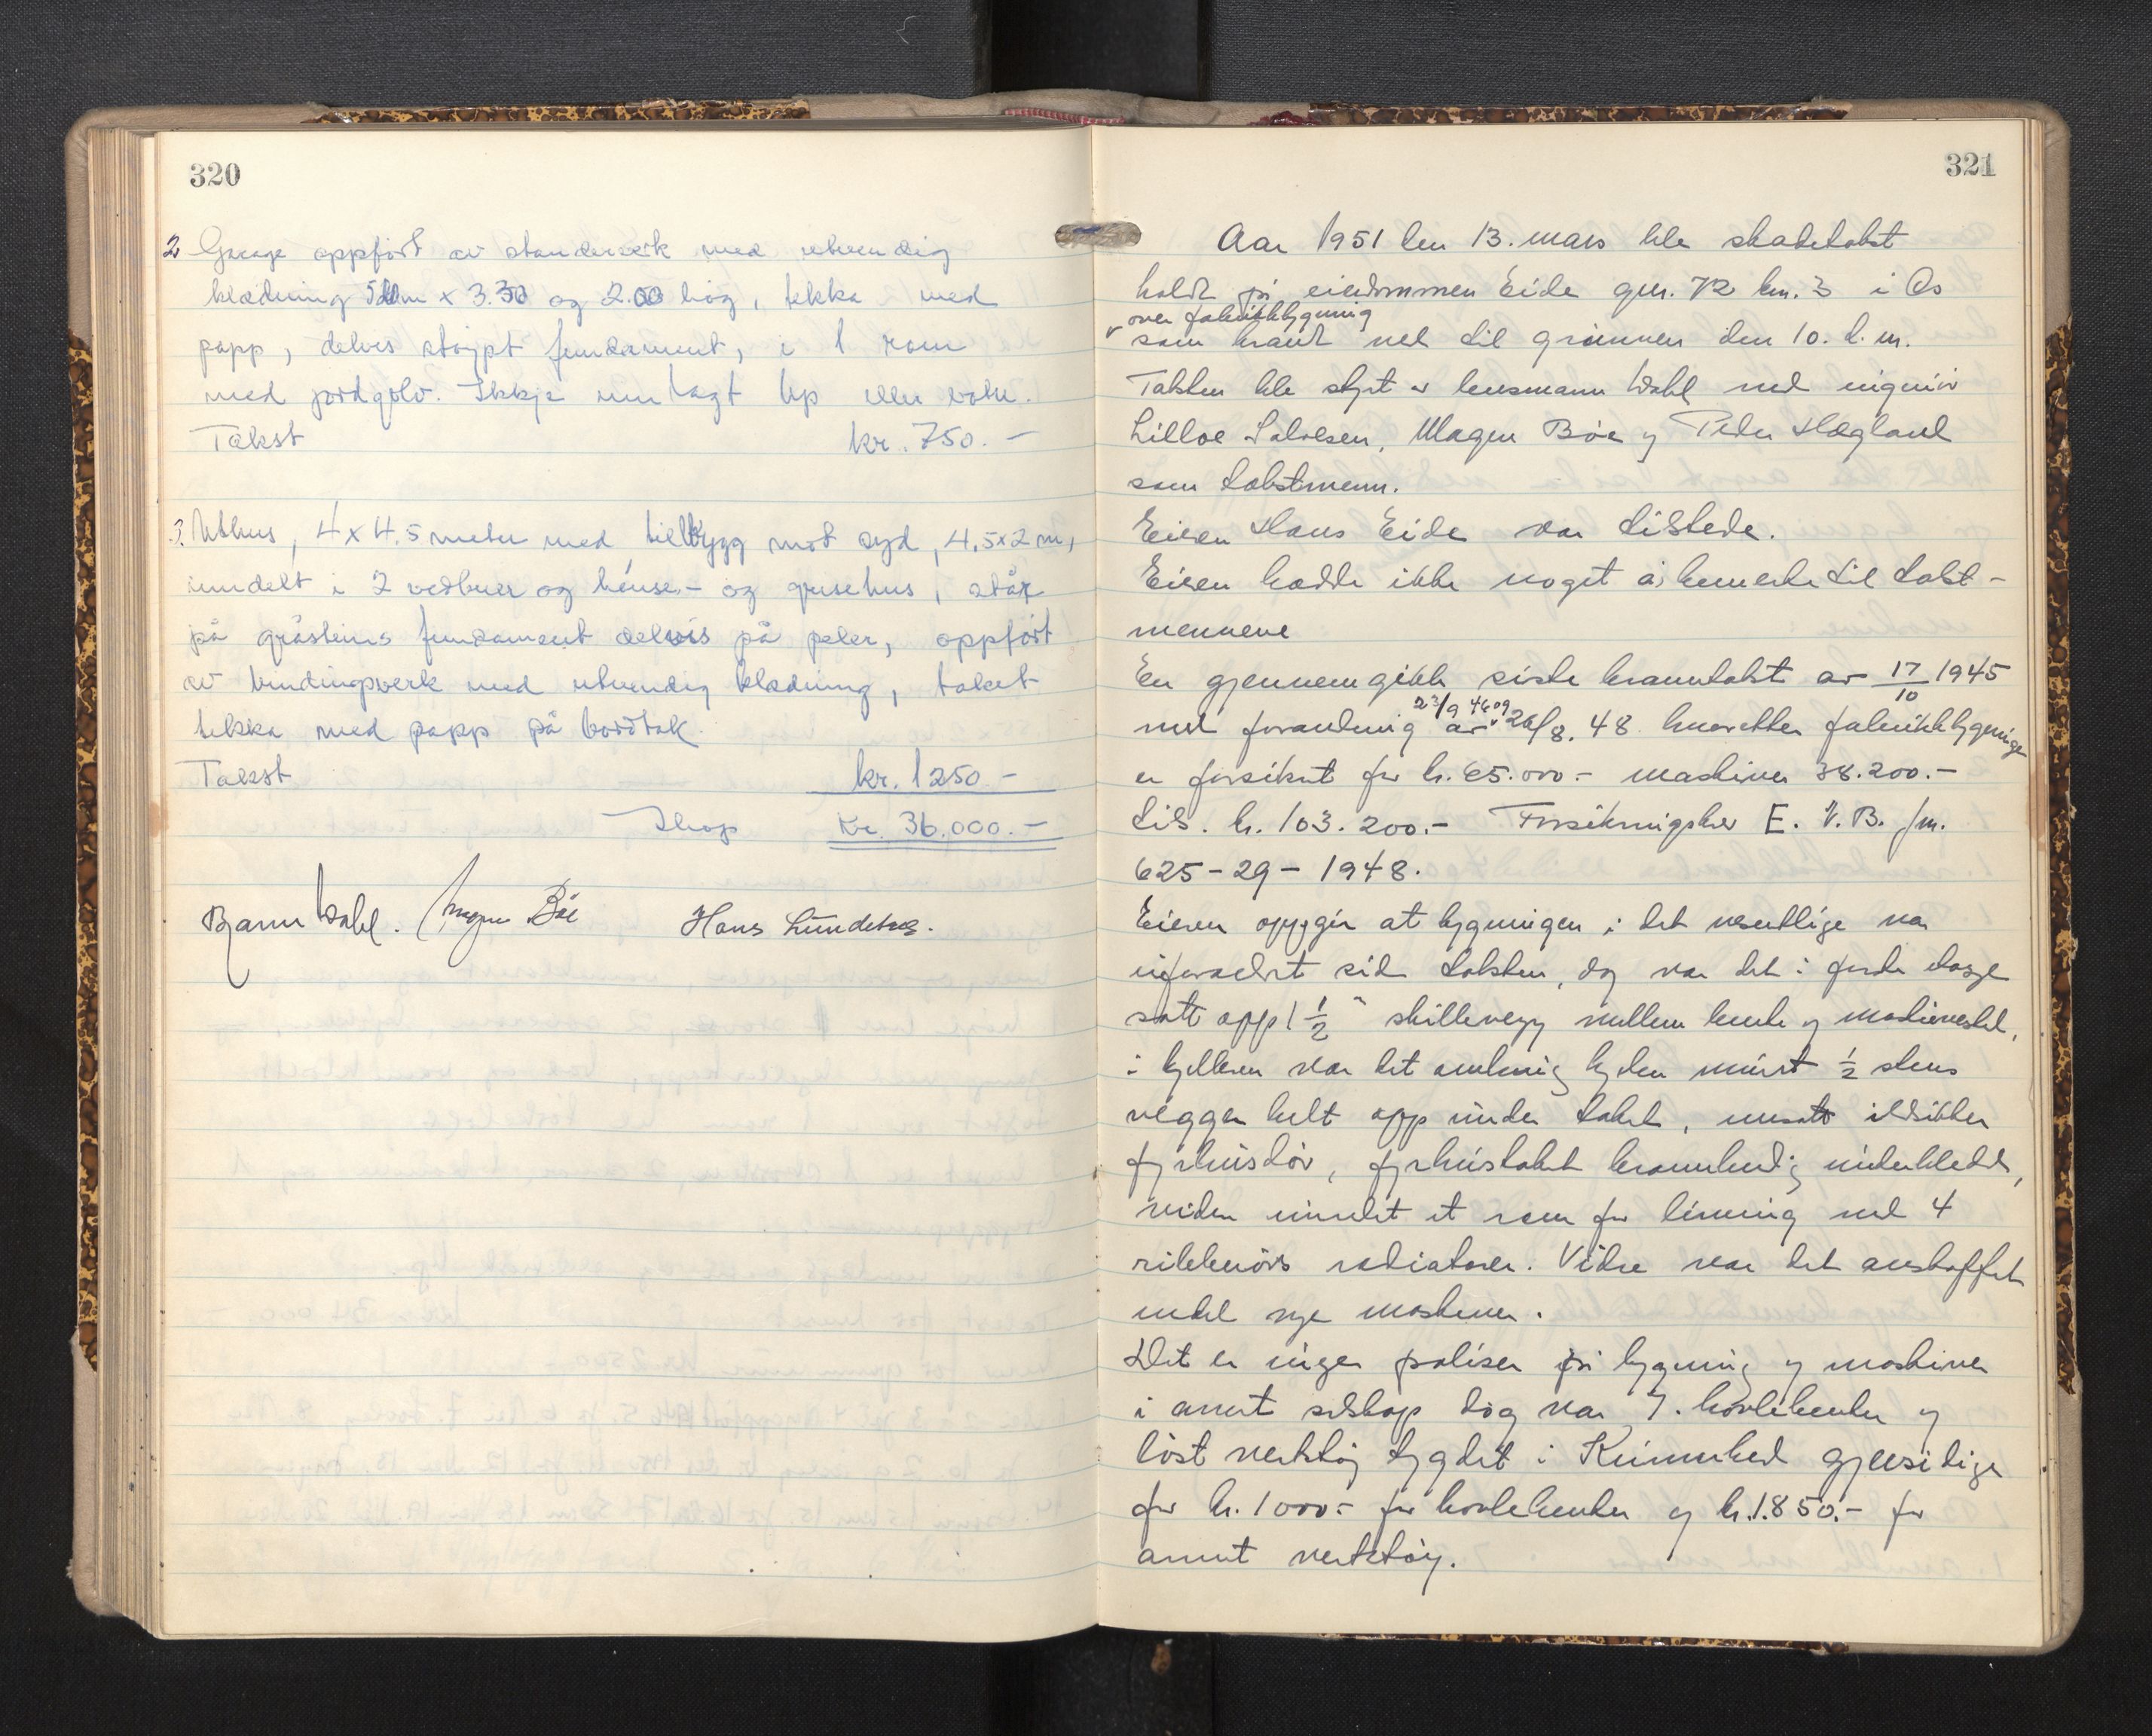 320
2 Garage oppført av standerverk med utvendig
klædning 5.00m x 3.30 og 2.00 høg, tekka med
papp, delvis støypt fundament, i 1 rom
med jordgolv. Ikkje innlagt lys eller vatn.
Takst kr. 750.-
3. Uthus, 4 x 4.5 meter med tilbygg mot syd, 4.5x2 m,
inndelt i 2 vedbuer og hønse- og grisehus, står
på gråsteins fundament delvis på peler, oppført
av bindingsverk med utvendig klædning, taket
tekka med papp på bordtak.
Takst kr. 1250.-
Ihop Kr. 36.000.-
Bjarne Wahl. Magne Bøe Hans Lundetræ.
321
Aar 1951 den 13. mars ble skadetakst
holdt på eiendommen Eide gnr. 72 bn. 3 i Os
over fabrikkbygning
som brant ned til grunnen den 10. d. m.
Taksten ble styrt av lensmann Wahl med ingeniør
Lilloe Salvesen, Magne Bøe og Peder Hægland
som takstmenn.
Eieren Hans Eide var tilstede.
Eieren hadde ikke noget å bemerke til takst-
mennene
En gjennemgikk siste branntakst av 17/10 1945
23/9 46 og
med forandring av 26/8. 48 hvoretter fabrikkbygningen
er forsikret for kr. 65.000.- maskiner 38.200.-
Tils. kr. 103.200.- Forsikringsbev E. V. B. fm.
625-29-1948.
Eieren oppgir at bygningen i det vesentlige var
uforandret siden taksten, dog var det i første etasje
satt opp 1 1/2" skillevegg mellem og maskinverksted,
i kjelleren var det omkring kjelen murt 1/2 stens
vegger helt opp under taket, innsatt ildsikker
fyrhusdør, fyrhustaket brannherdig underkledd,
viden innredet et rom for liming med 4
ribberørs radiatorer. Videre var det anskaffet
endel nye maskiner.
Det er ingen poliser på bygning og maskiner
i annet selskap dog var 7. høvlebenker og
løst verktøy trygdet i Kvinnherad gjensidige
for kr. 1000.- for høvlebenker og kr. 1.850.- for
annet verktøy.